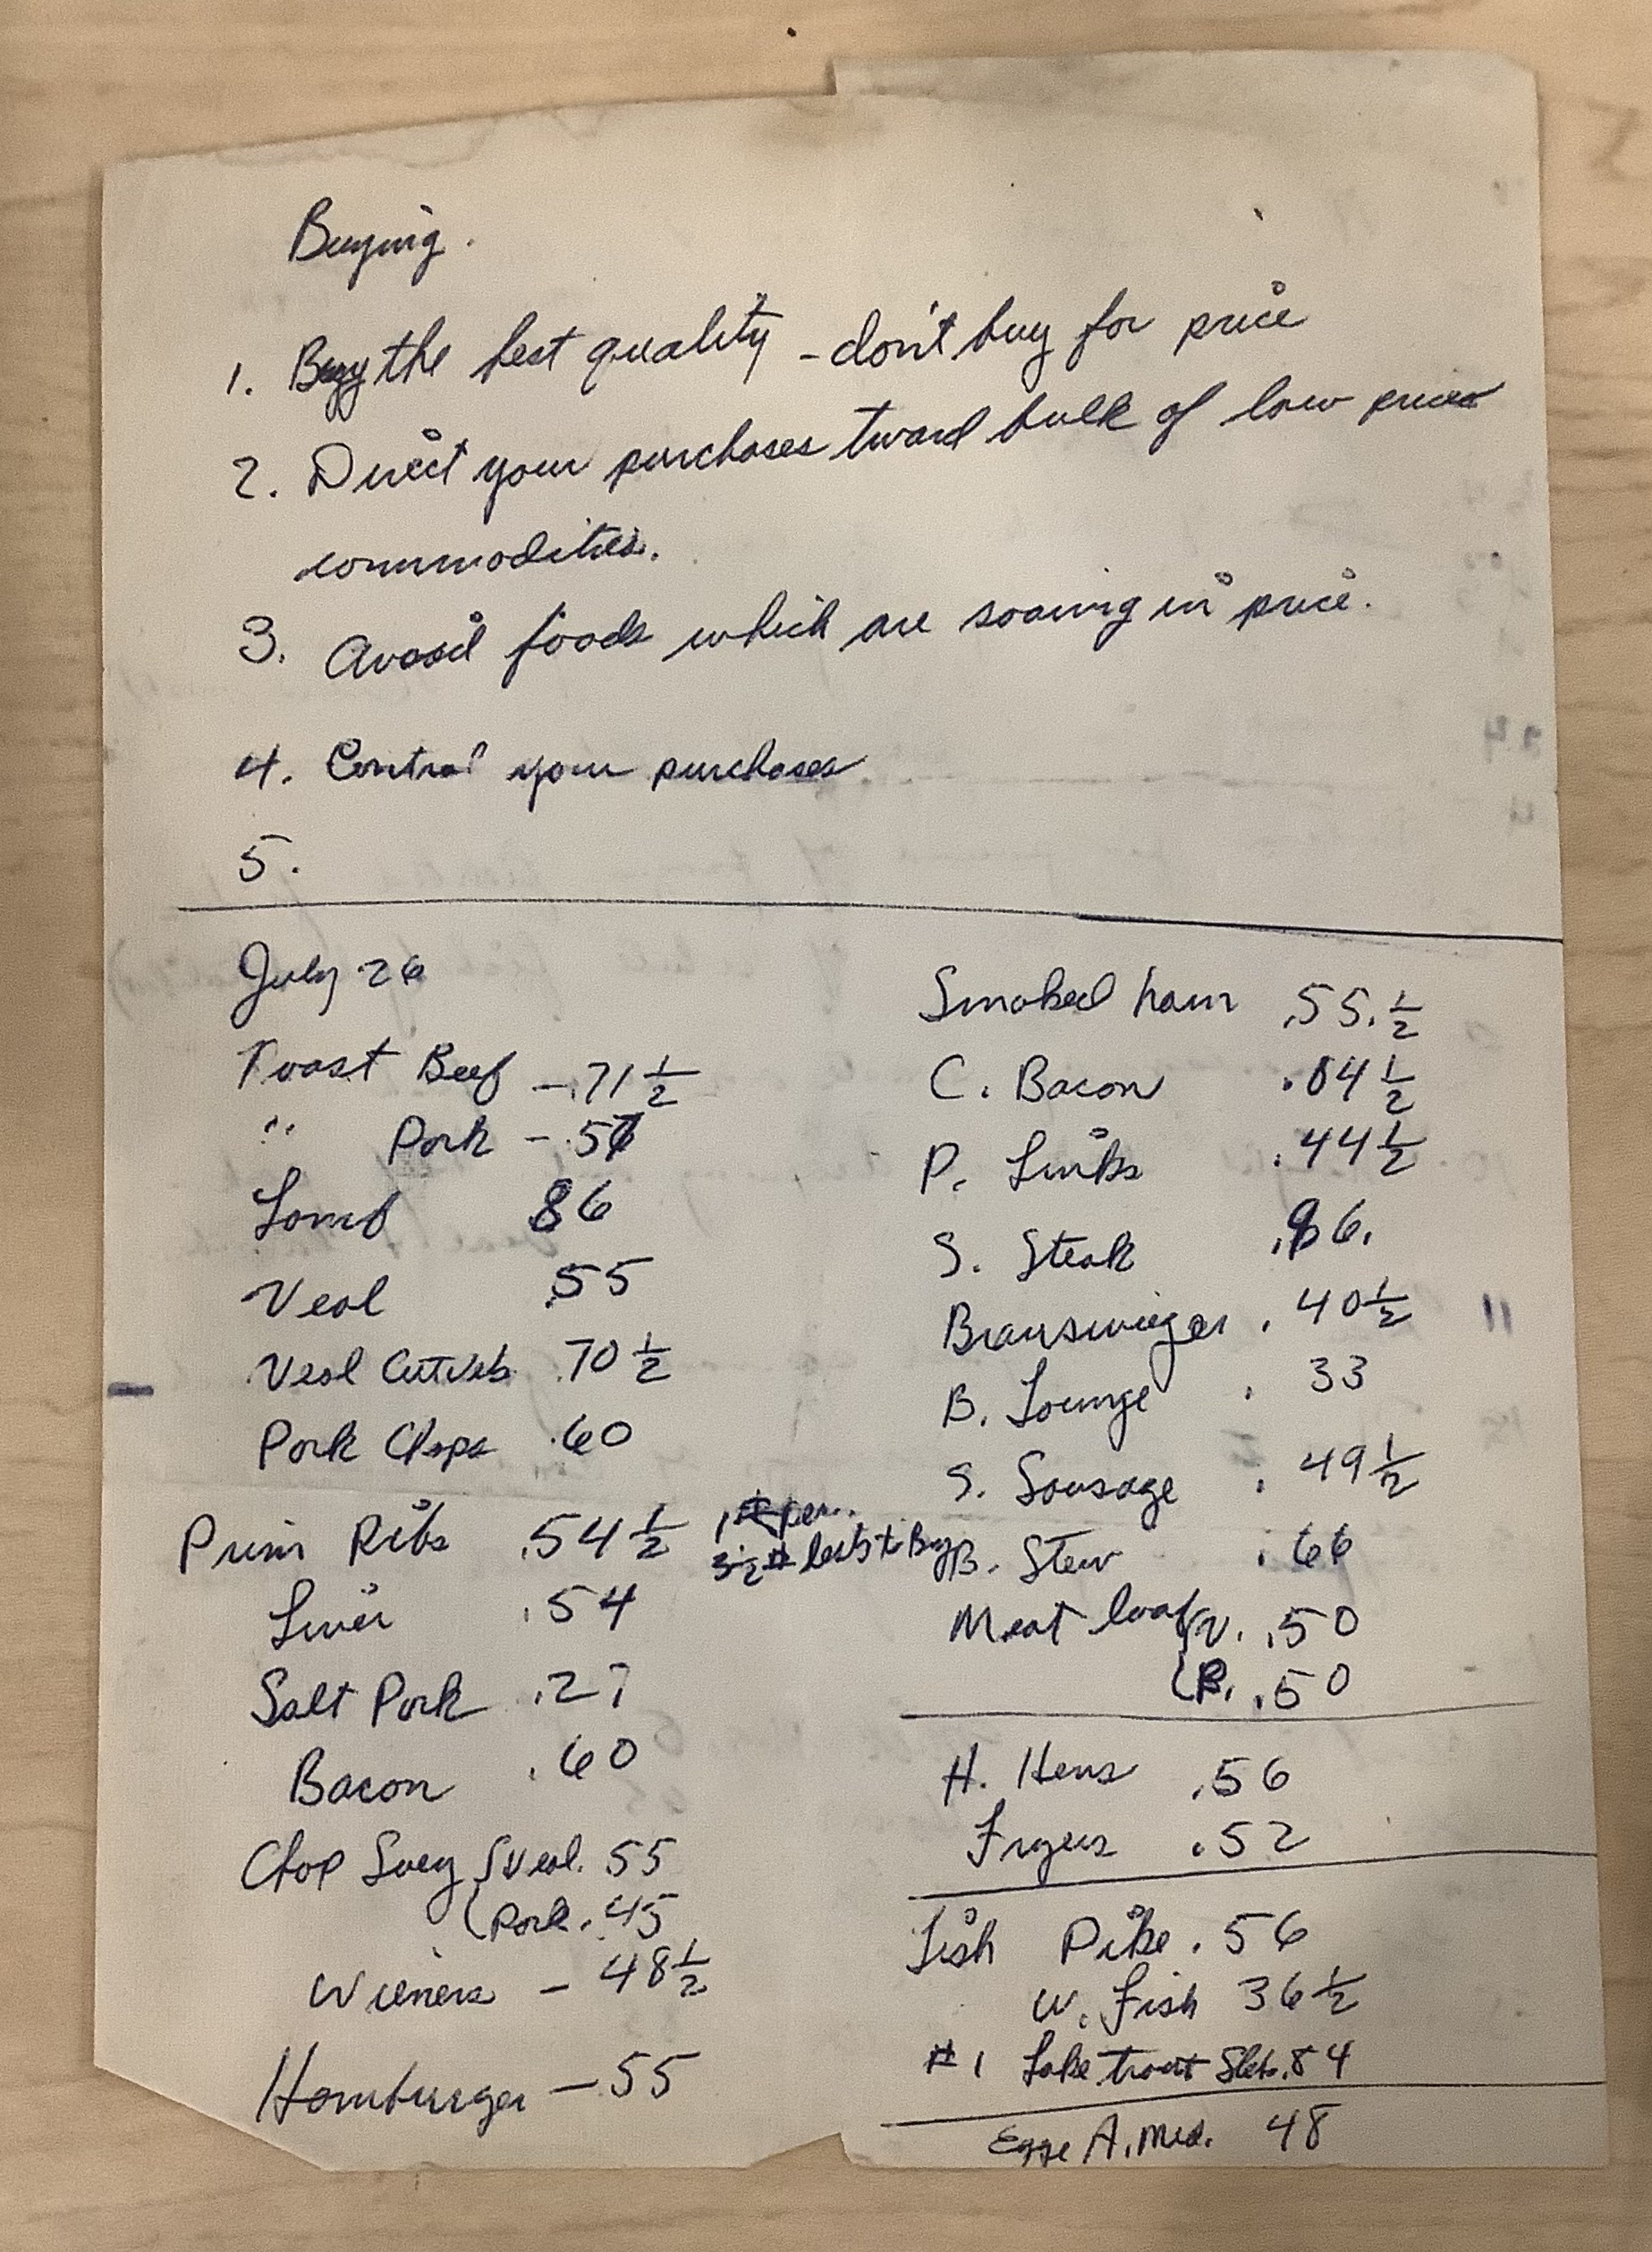 Buying.
1. Buy the best quality - don't buy for price
2. Direct your purchases tward bulk of low price
commodities.
3. Avoid foods which are soaring in price.
4. Control your purchases
5.
July 26
Roast Beef - .71 1/2
" Pork - .57
Lamb 86
Veal .55
Veal Cutlets .70 1/2
Pork Chops .60
Prim Ribs .54 1/2
Liver .54
Salt Pork .27
Bacon .60
Chop Suey { Veal .55
( Pork .45
Wieners - 48 1/2
Hamburger - 55
Smoked ham .55. 1/2
C. Bacon
P. Links .44 1/2
S. Steak .86.
Braunsweiger .40 1/2
B. Lounge . 33
S. Sausage . 49 1/2
B. Stew . 66
Meat loaf { V. .50
( P. .50
H. Hens .56
Fryers .52
Fish Pike .56
W. Fish 36 1/2
# 1 Lake trout .84
Eggs A. Med. 48